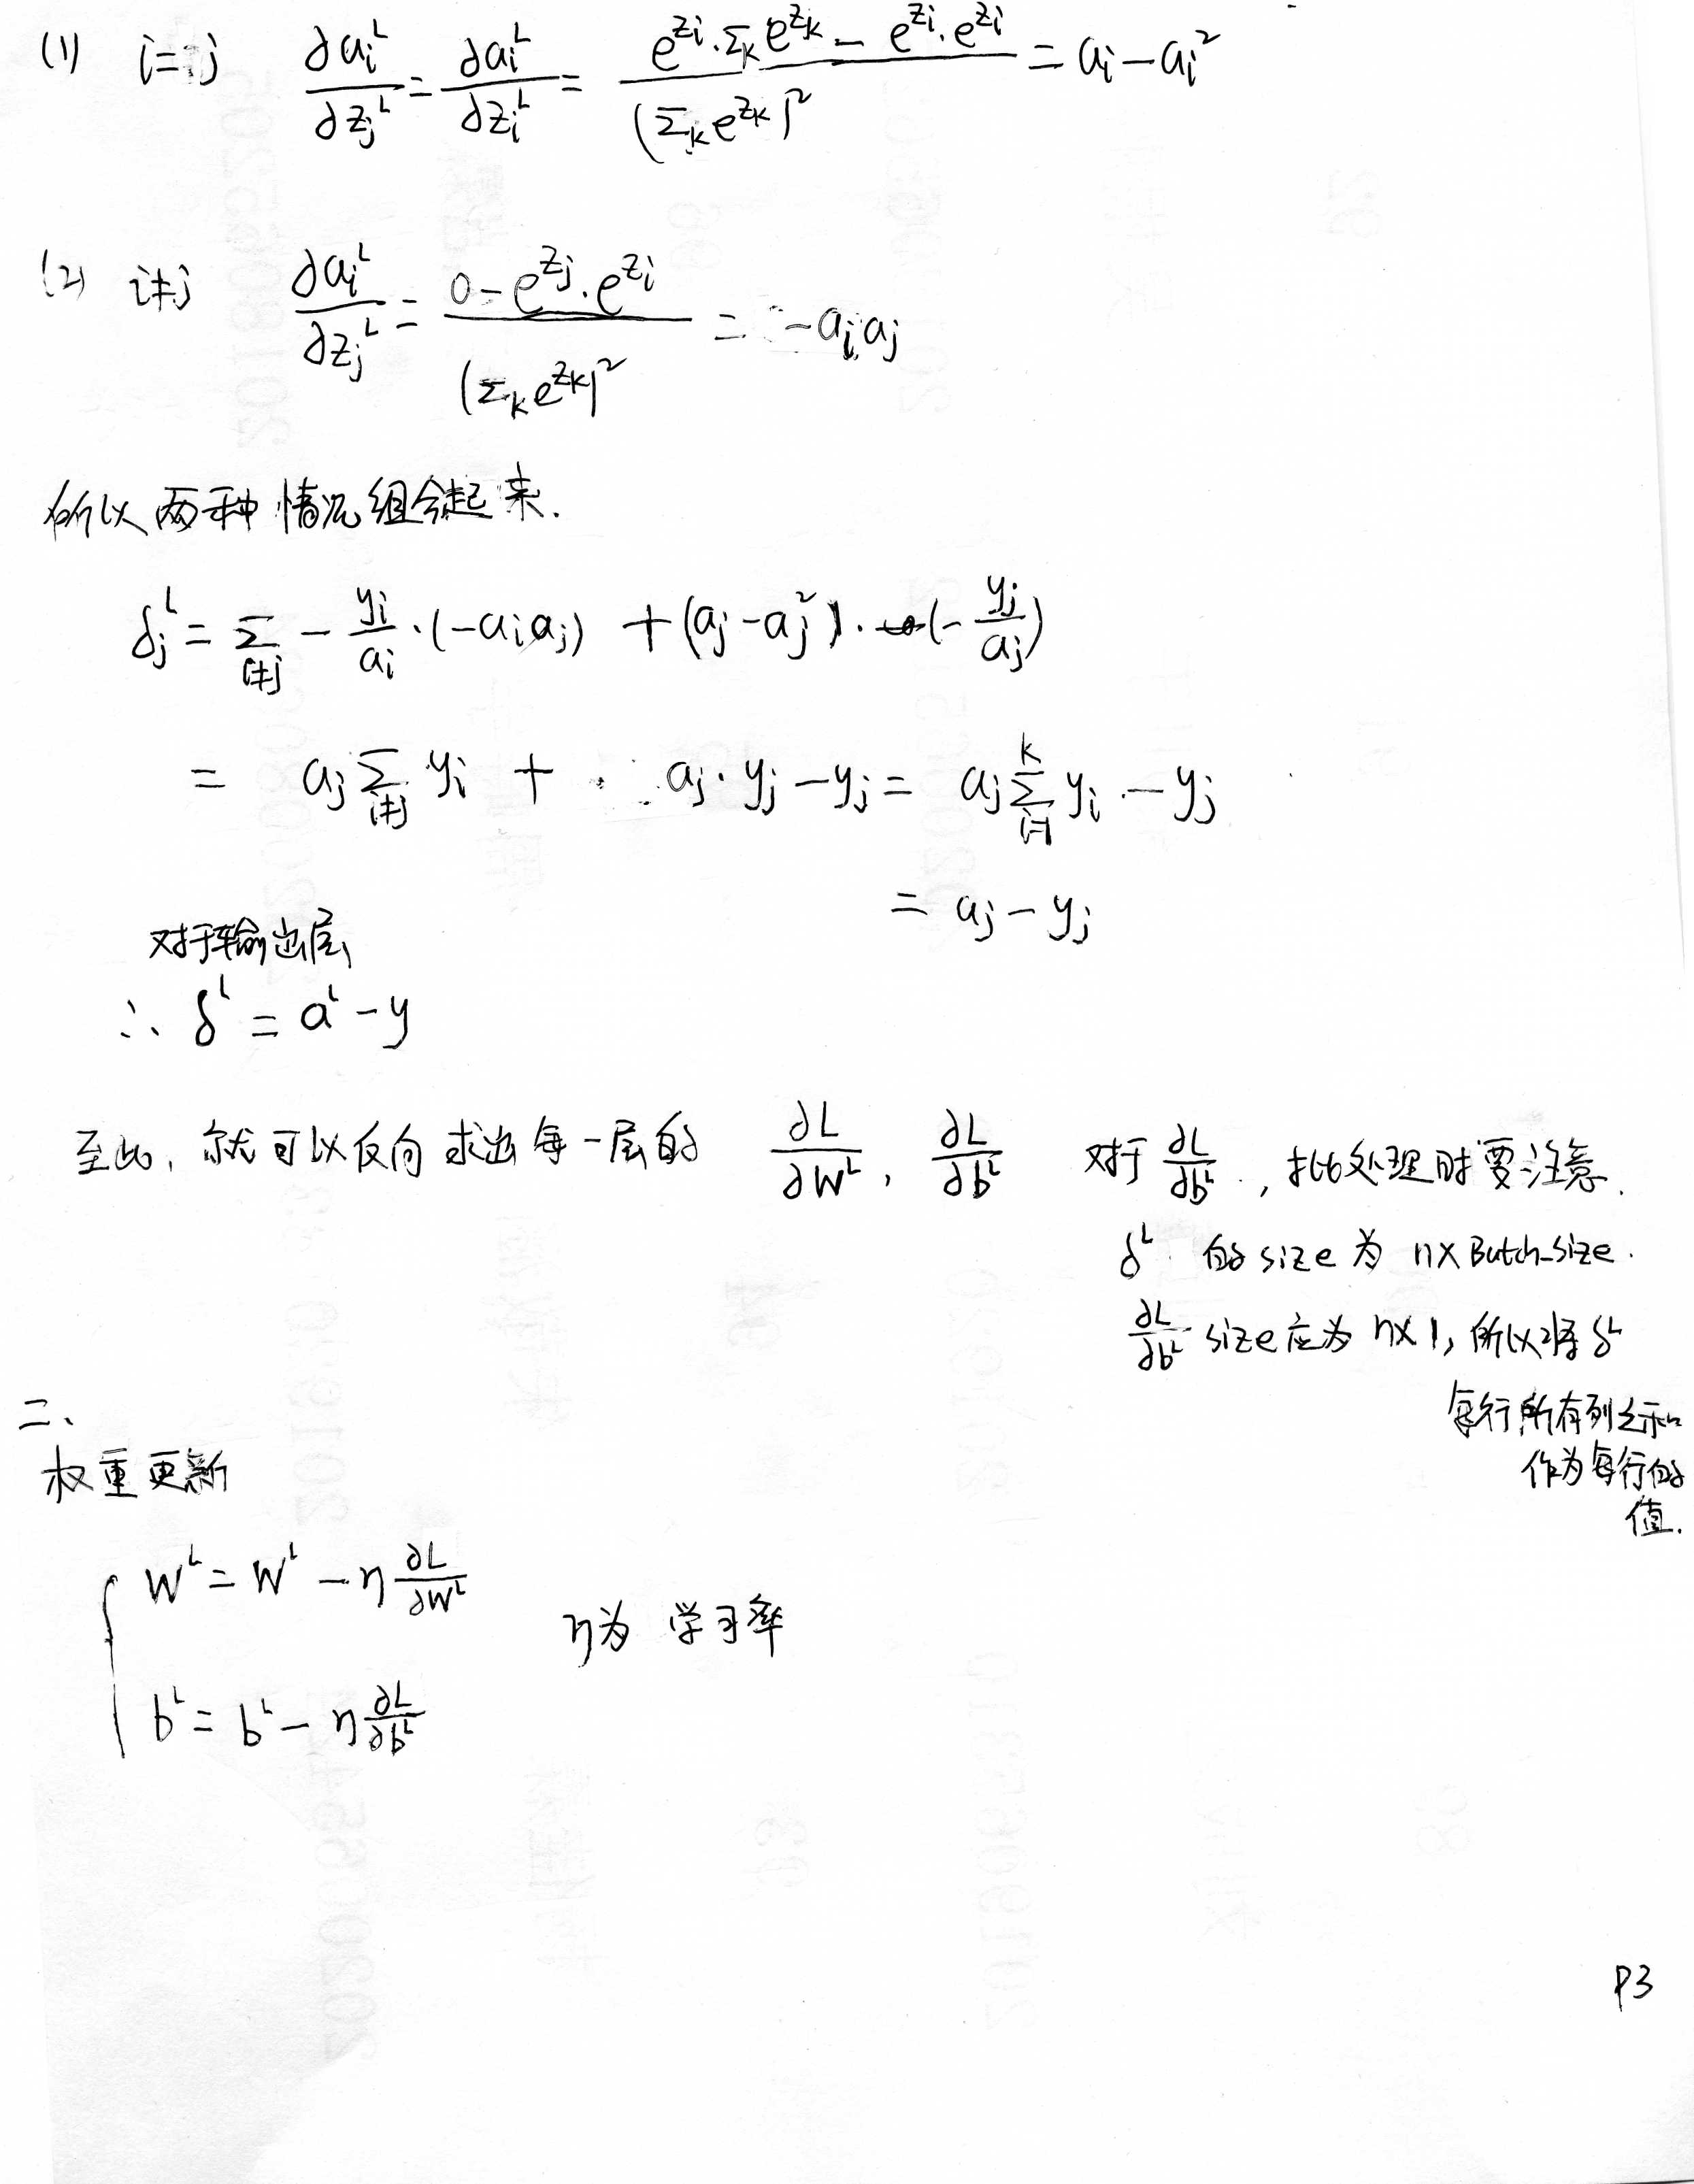 (1) i=j ∂aᵢᴸ/∂zⱼᴸ = ∂aᵢᴸ/∂zᵢᴸ = (e^{zᵢ}·Σₖe^{zₖ} − e^{zᵢ}·e^{zᵢ})/(Σₖe^{zₖ})² = aᵢ−aᵢ²
(2) i≠j ∂aᵢᴸ/∂zⱼᴸ = (0−e^{zⱼ}·e^{zᵢ})/(Σₖe^{zₖ})² = −aᵢaⱼ
所以两种情况组合起来.
δⱼᴸ = Σ_{i≠j} − yᵢ/aᵢ·(−aᵢaⱼ) + (aⱼ−aⱼ²)·(−yⱼ/aⱼ)
= aⱼ Σ_{i≠j} yᵢ + aⱼ·yⱼ − yⱼ = aⱼ Σ_{i=1}^{k} yᵢ − yⱼ
= aⱼ − yⱼ
对于输出层
∴ δᴸ = aᴸ − y
至此, 就可以反向求出每一层的 ∂L/∂Wᴸ, ∂L/∂bᴸ
对于 ∂L/∂bᴸ, 批处理时要注意.
δᴸ 的 size 为 n×Batch_size.
∂L/∂bᴸ size应为 n×1, 所以将 δᴸ
每行所有列之和
作为每行的
值.
二、
权重更新
Wᴸ = Wᴸ − η ∂L/∂Wᴸ
η为 学习率
bᴸ = bᴸ − η ∂L/∂bᴸ
P3